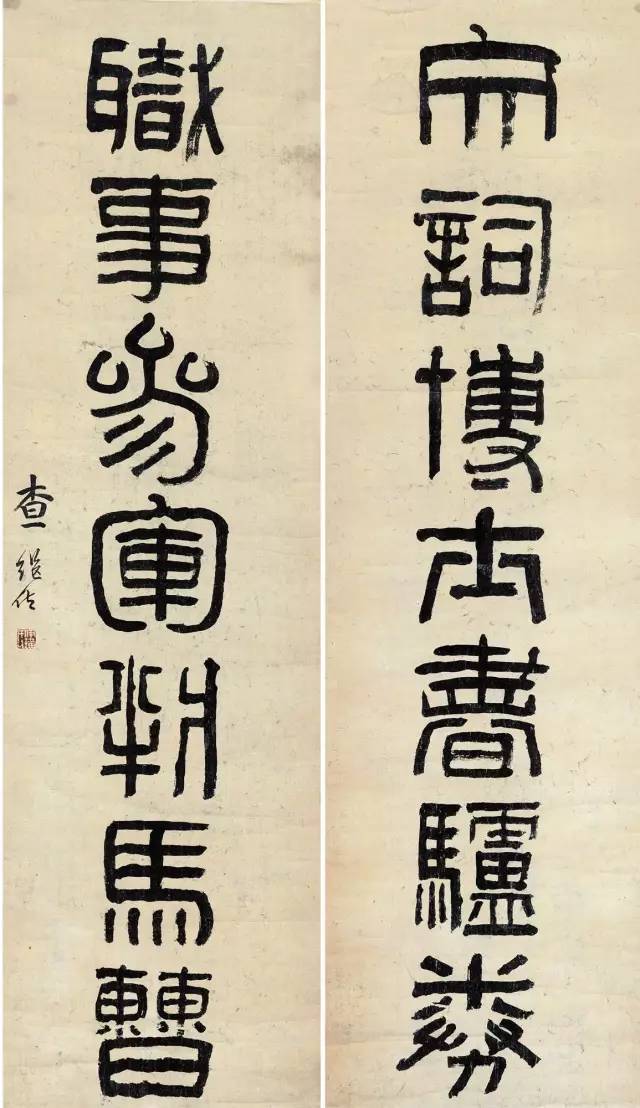 宂詞博士書驢券
職事參軍判馬曹
查繼佐